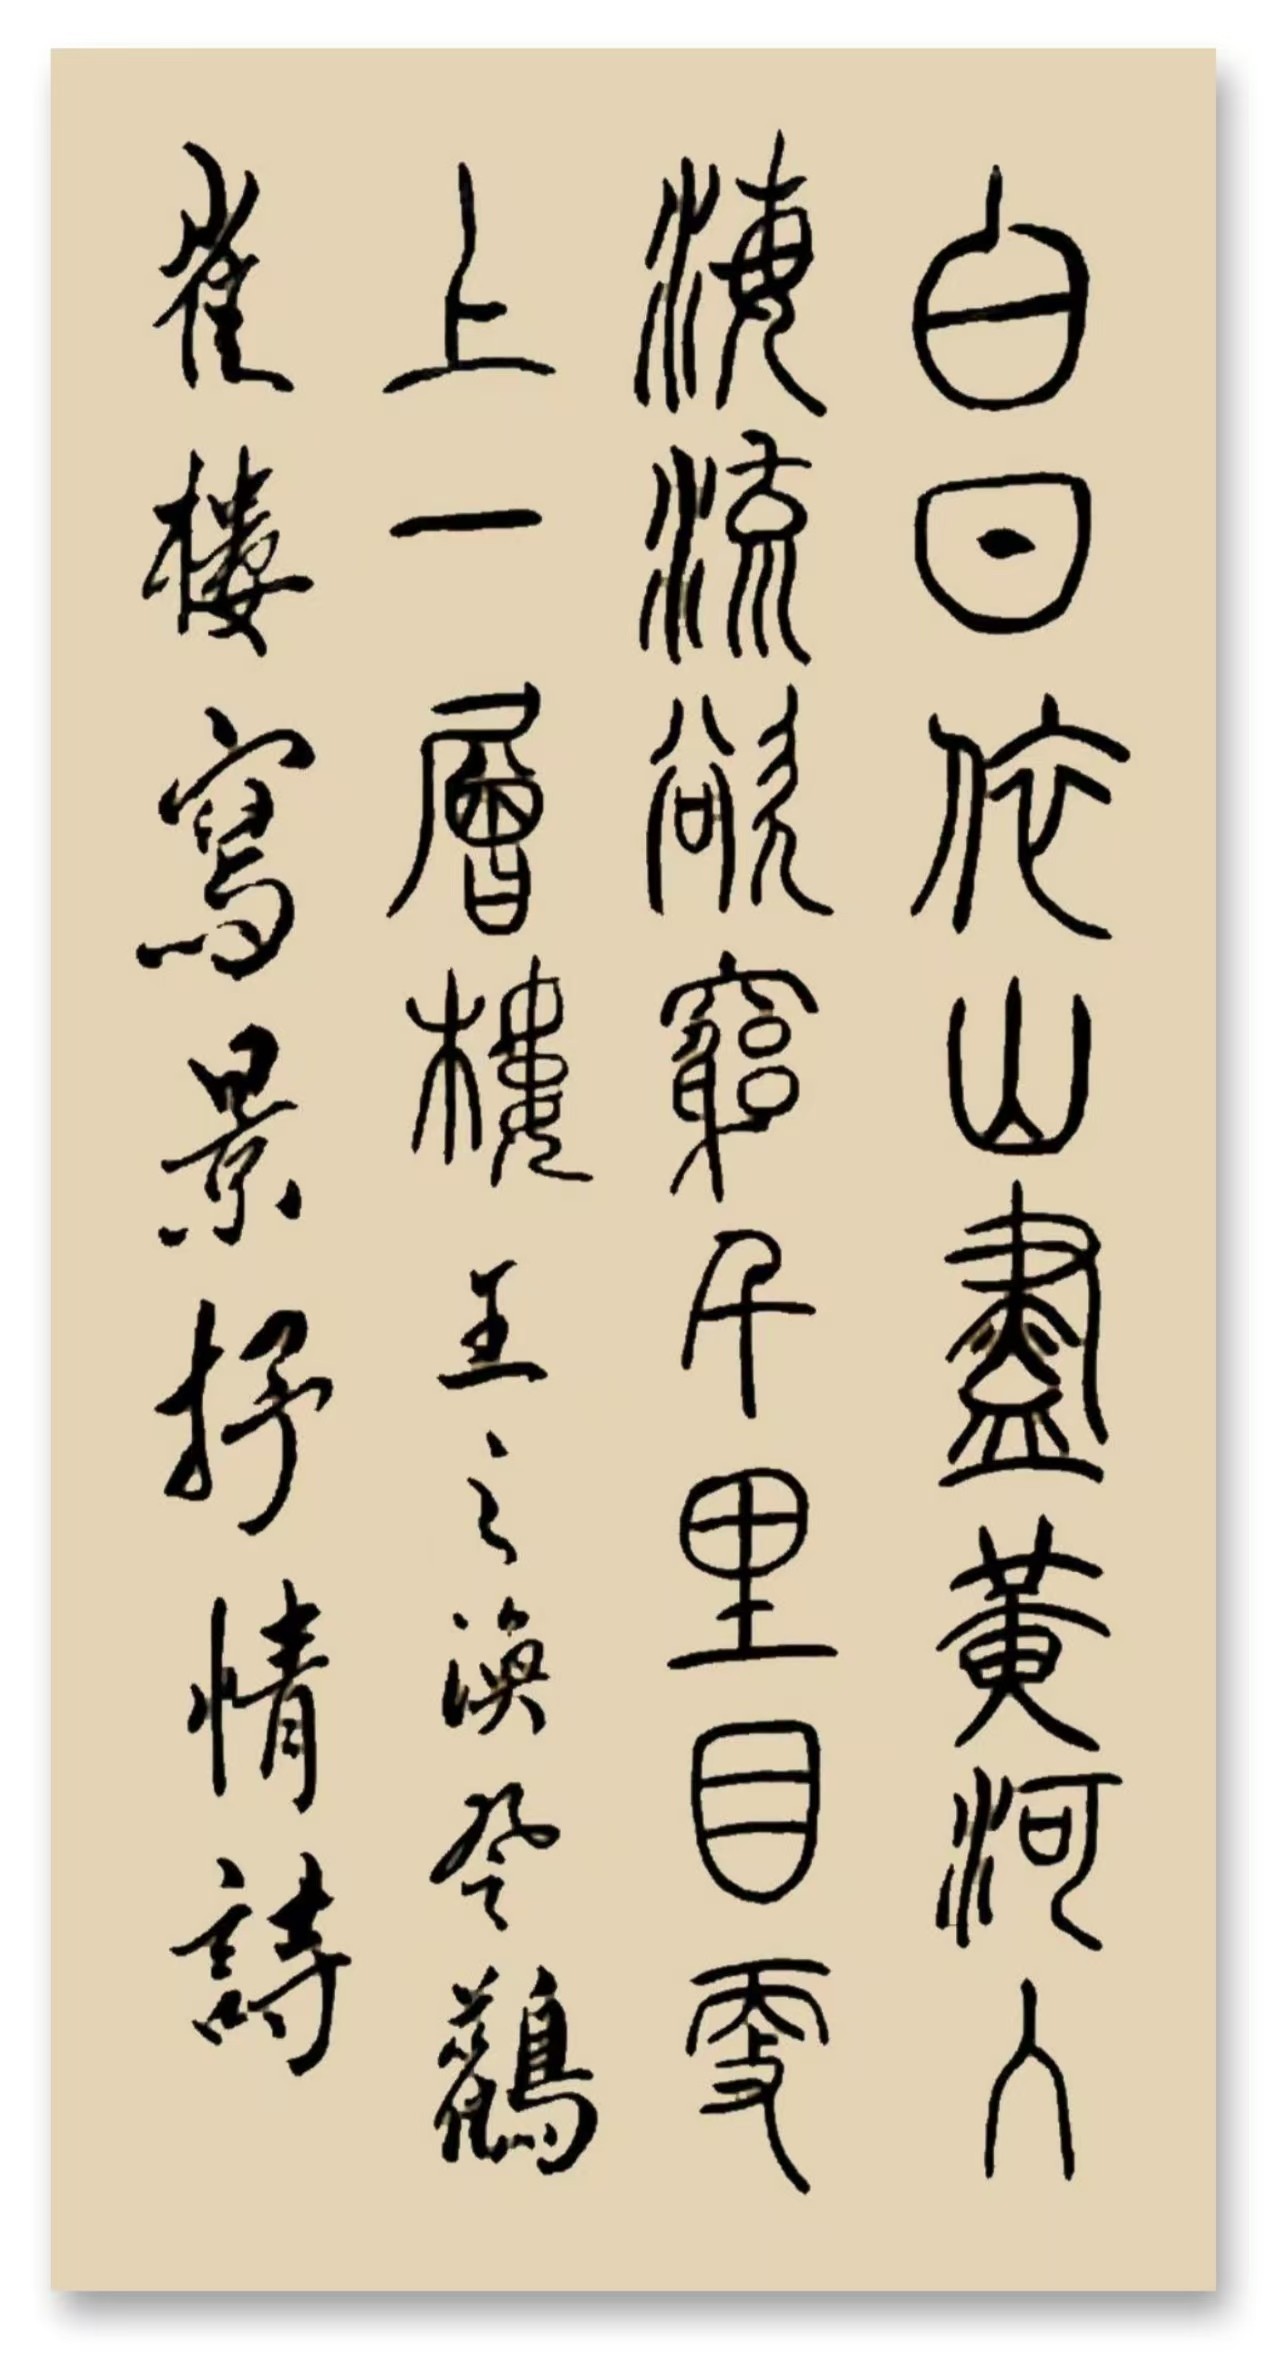 白日依山盡黃河入
海流欲窮千里目更
上一層樓王之渙登鸛
雀樓寫景抒情詩